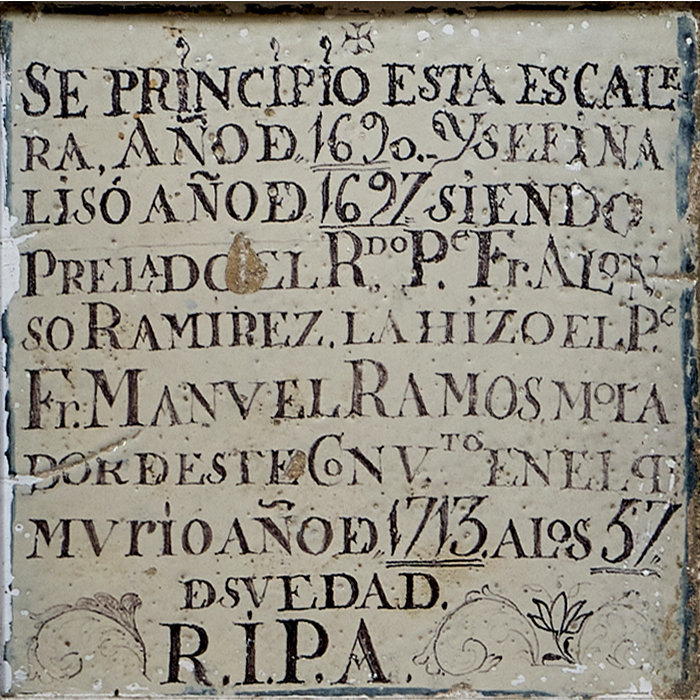 SE PRINCIPIO ESTA ESCALE
RA, AÑO D. 1690.- Y SE FINA
LISÓ AÑO D 1697 SIENDO
PRELADO EL R.DO P.E Fr. ALON
SO RAMIREZ. LA HIZO EL P.E
Fr. MANVEL RAMOS MORA
DOR DESTE CONV.TO EN EL Q
MVRIO AÑO D. 1713. A LOS 57
D SV EDAD.
R.I.P.A.